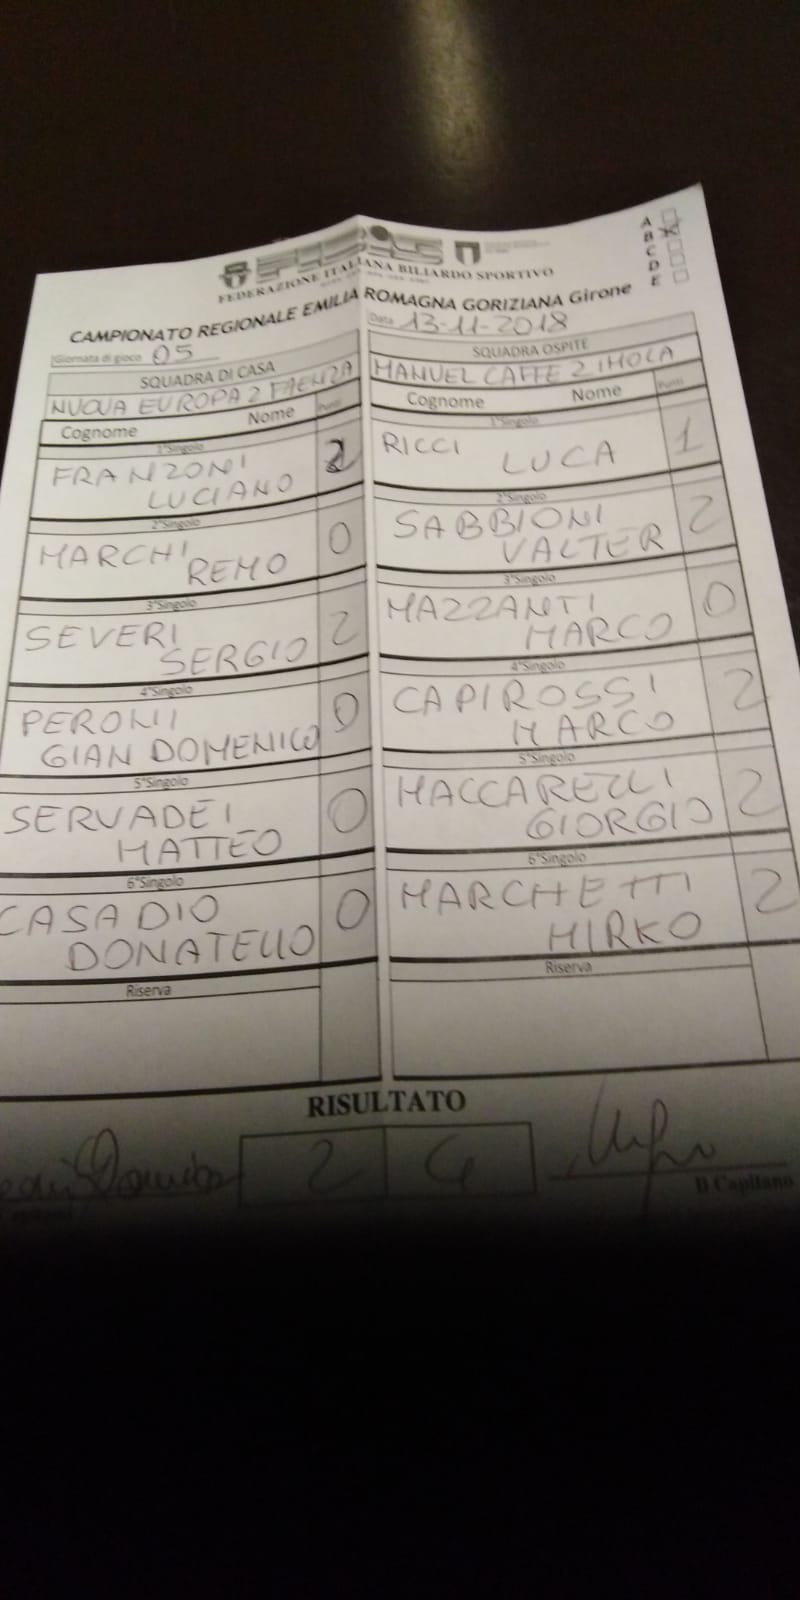 FEDERAZIONE ITALIANA BILIARDO SPORTIVO
CAMPIONATO REGIONALE EMILIA ROMAGNA GORIZIANA Girone
A
B
C
D
E
Giornata di gioco 05
Data 13-11-2018
SQUADRA DI CASA
NUOVA EUROPA 2 FAENZA
Cognome Nome Punti
1°Singolo
FRANZONI
LUCIANO 2
2°Singolo
MARCHI
REMO 0
3°Singolo
SEVERI
SERGIO 2
4°Singolo
PERONI
GIAN DOMENICO 0
5°Singolo
SERVADEI
MATTEO 0
6°Singolo
CASADIO
DONATELLO 0
Riserva
SQUADRA OSPITE
MANUEL CAFFE 2 IMOLA
Cognome Nome Punti
1°Singolo
RICCI
LUCA 1
2°Singolo
SABBIONI
VALTER 2
3°Singolo
MAZZANTI
MARCO 0
4°Singolo
CAPIROSSI
MARCO 2
5°Singolo
MACCARELLI
GIORGIO 2
6°Singolo
MARCHETTI
MIRKO 2
Riserva
RISULTATO
2 4
Il Capitano